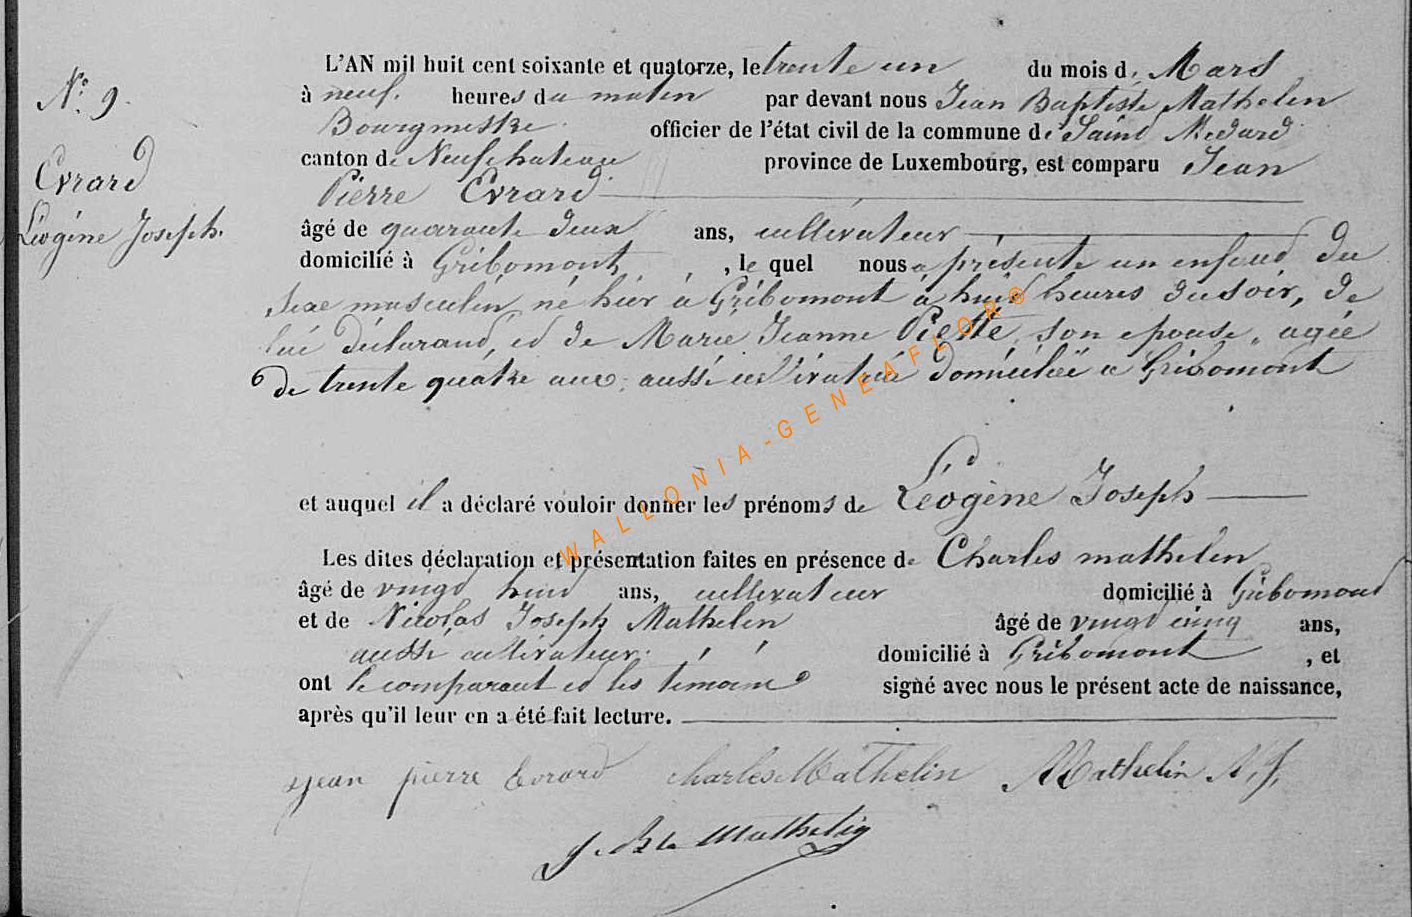 N° 9.
Evrard
Léogène Joseph.
L'AN mil huit cent soixante et quatorze, le trente un du mois de Mars
à neuf heures du matin par devant nous Jean Baptiste Mathelin
Bourgmestre officier de l'état civil de la commune de Saint Médard
canton de Neufchateau province de Luxembourg, est comparu Jean
Pierre Evrard
âgé de quarante deux ans, cultivateur
domicilié à Gribomont, le quel nous a présenté un enfant du
sexe masculin, né hier à Gribomont à huit heures du soir, de
lui déclarant, et de Marie Jeanne Pierre son epouse, agée
de trente quatre ans, aussi cultivatrice domiciliée a Gribomont
et auquel il a déclaré vouloir donner les prénoms de Léogène Joseph
Les dites déclaration et présentation faites en présence de Charles mathelin
âgé de vingt huit ans, cultivateur domicilié à Gribomont
et de Nicolas Joseph Mathelin âgé de vingt cinq ans,
aussi cultivateur domicilié à Gribomont, et
ont le comparant et les témoins signé avec nous le présent acte de naissance,
après qu'il leur en a été fait lecture.
jean pierre Evrard charles Mathelin Mathelin N. J.
J. Bte Mathelin
WALLONIA-GENEAFLOR®